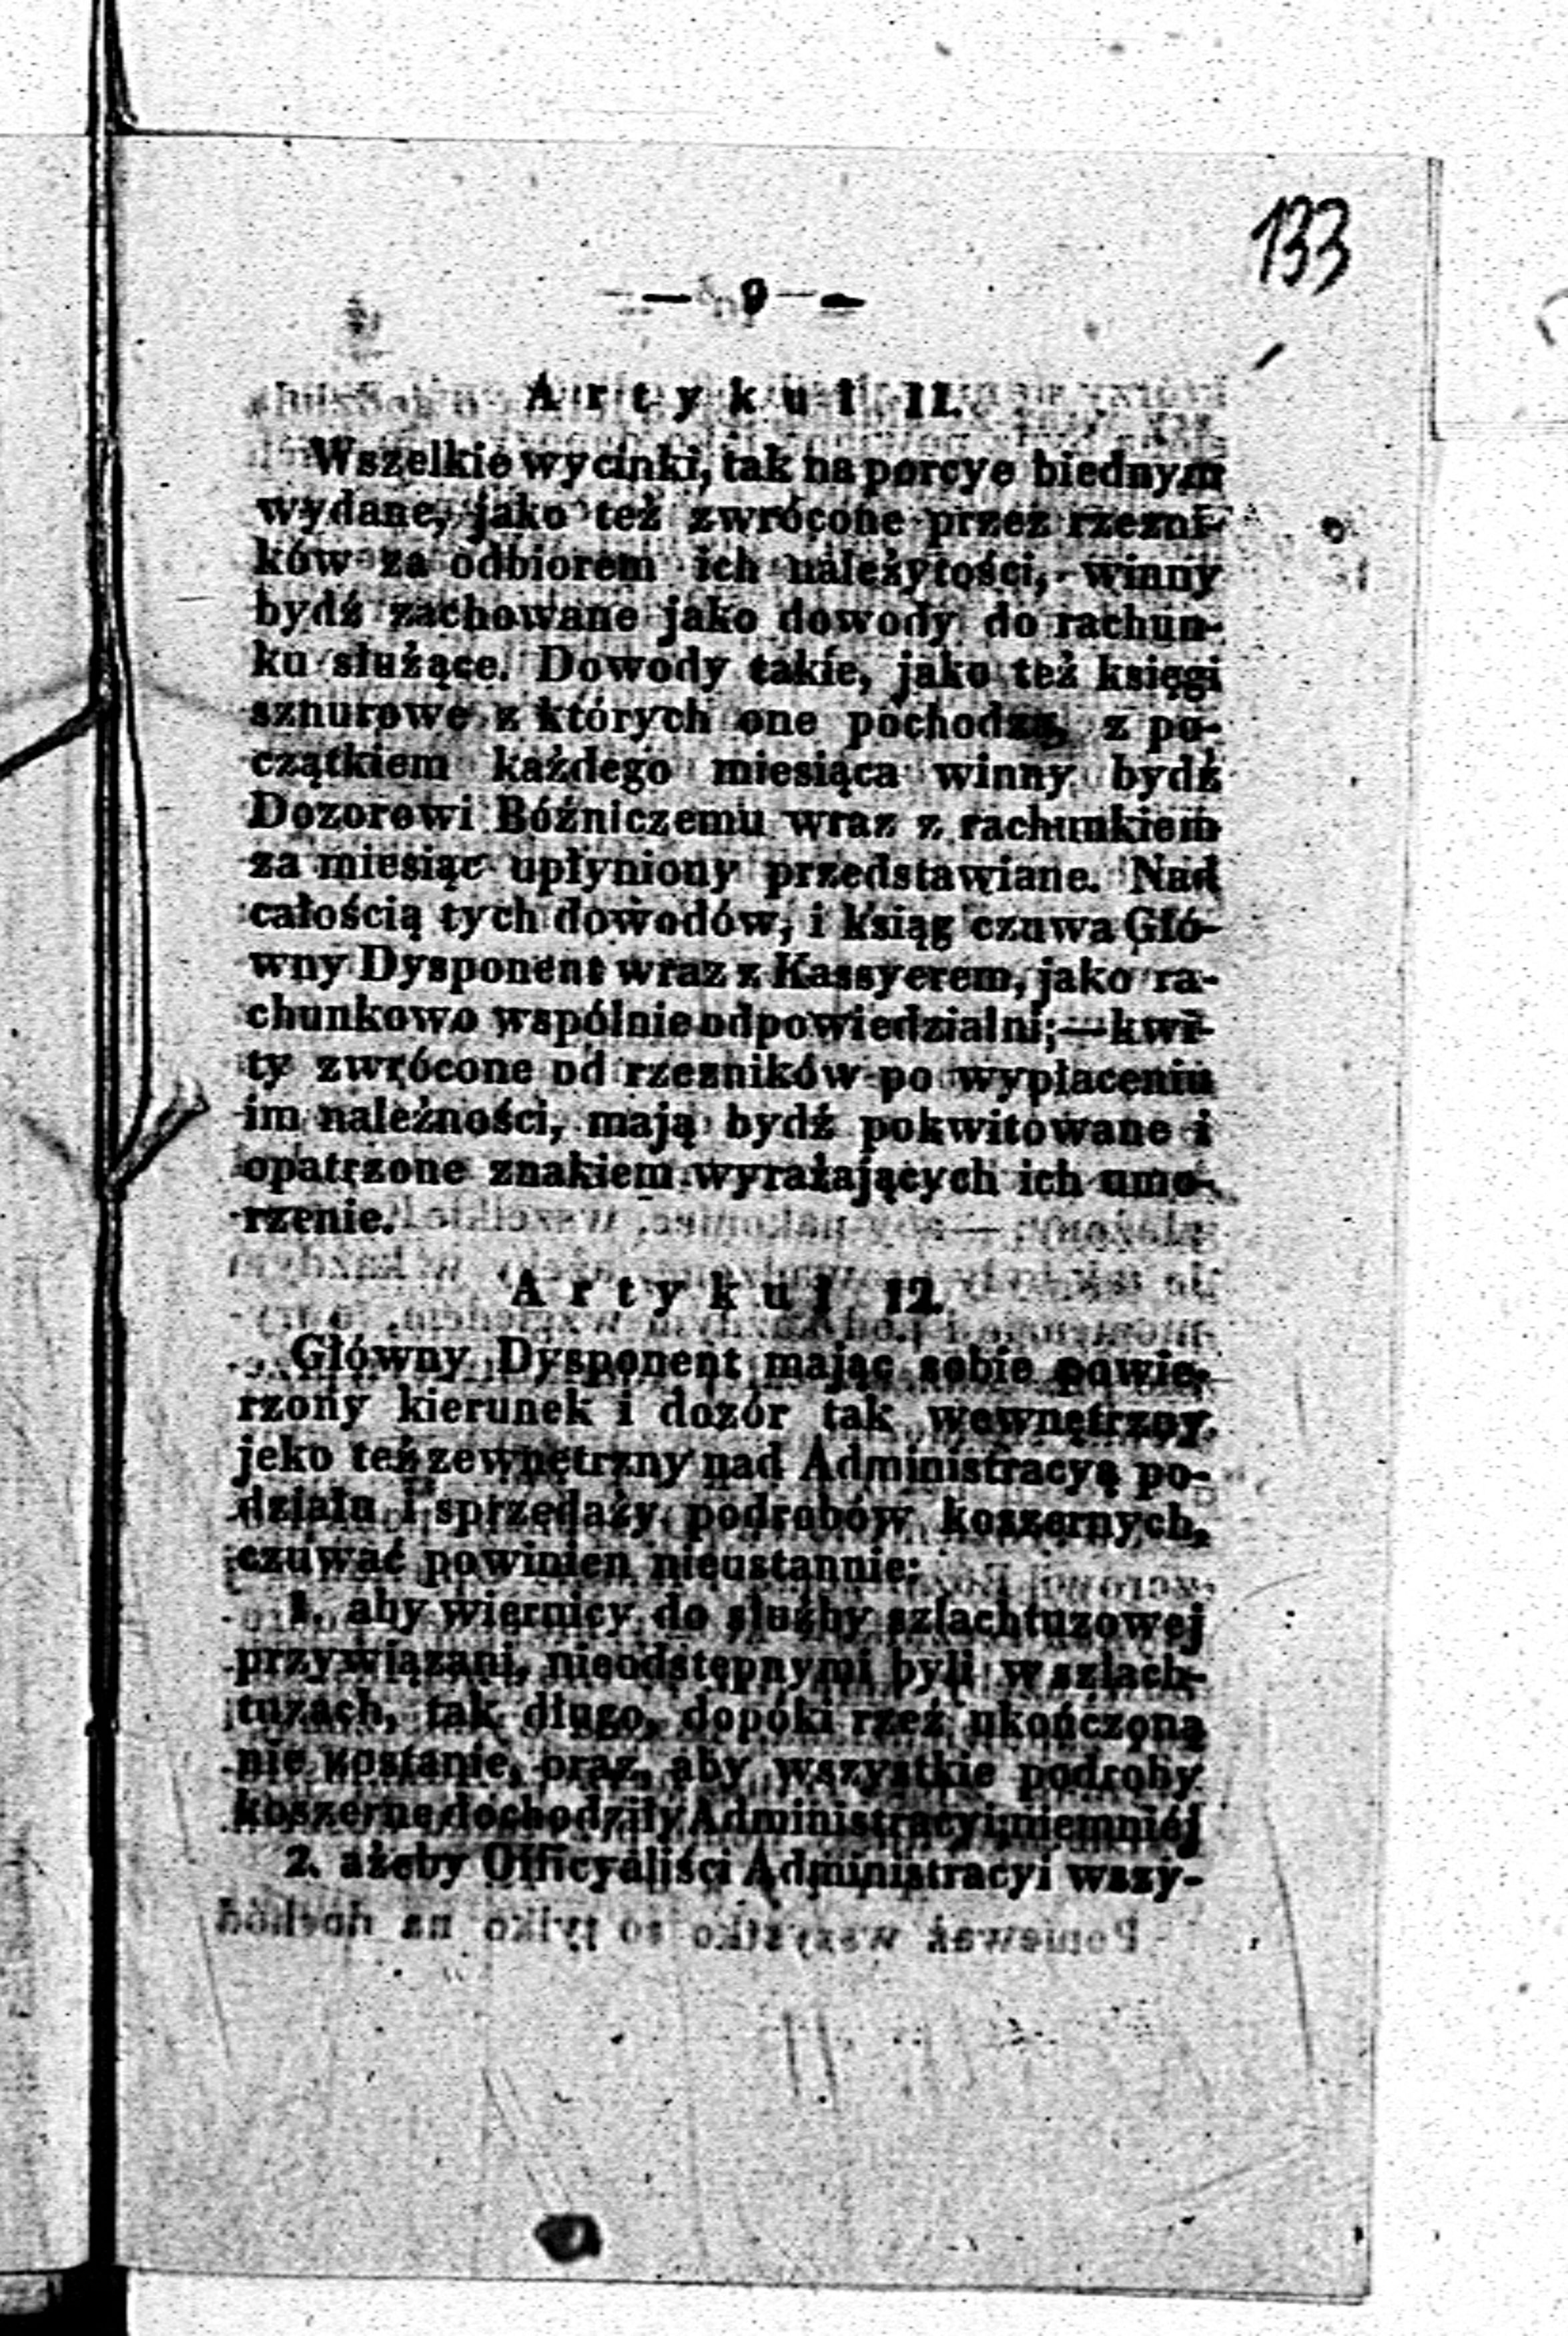 133
— 9 —
Artykuł 11.
Wszelkie wycinki, tak na porcye biednym
wydane, jako też zwrócone przez rzezni-
ków za odbiorem ich należytości, winny
bydź zachowane jako dowody do rachun-
ku służące. Dowody takie, jako też księgi
sznurowe z których one pochodzą, z po-
czątkiem każdego miesiąca winny bydź
Dozorowi Bóźniczemu wraz z rachunkiem
za miesiąc upłyniony przedstawiane. Nad
całością tych dowodów, i ksiąg czuwa Głó-
wny Dysponent wraz z Kassyerem, jako ra-
chunkowo wspólnie odpowiedzialni;—kwi-
ty zwrócone od rzezników po wypłaceniu
im należności, mają bydź pokwitowane i
opatrzone znakiem wyrażających ich umo-
rzenie.
Artykuł 12.
Główny Dysponent mając sobie powie-
rzony kierunek i dozór tak wewnętrzny
jeko też zewnętrzny nad Administracyą po-
działu i sprzedaży podrobów koszernych,
czuwać powinien nieustannie:
1. aby wiernicy do służby szlachtuzowej
przywiązani, nieodstępnymi byli w szlach-
tuzach, tak długo, dopóki rzeź ukończoną
nie zostanie, oraz, aby wszystkie podroby
koszerne dochodziły Administracyi; niemniéj
2. ażeby Officyaliści Administracyi wszy-